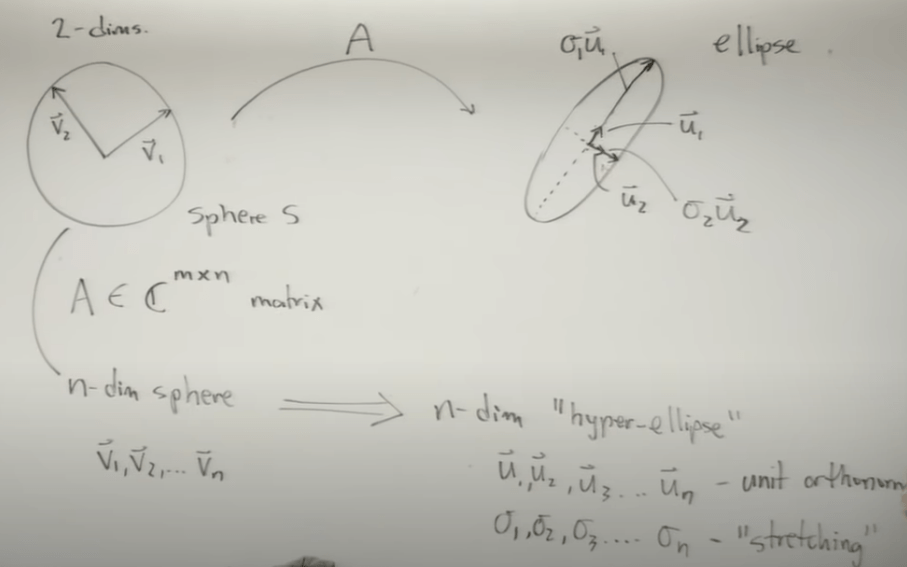 2-dims.
A
ellipse
σ₁u⃗₁
v⃗₂
v⃗₁
u⃗₁
u⃗₂
σ₂u⃗₂
Sphere S
A ∈ ℂ^{m×n} matrix
n-dim sphere
⟹
n-dim "hyper-ellipse"
v⃗₁, v⃗₂, ... v⃗ₙ
u⃗₁, u⃗₂, u⃗₃ ... u⃗ₙ - unit orthonorm
σ₁, σ₂, σ₃ .... σₙ - "stretching"